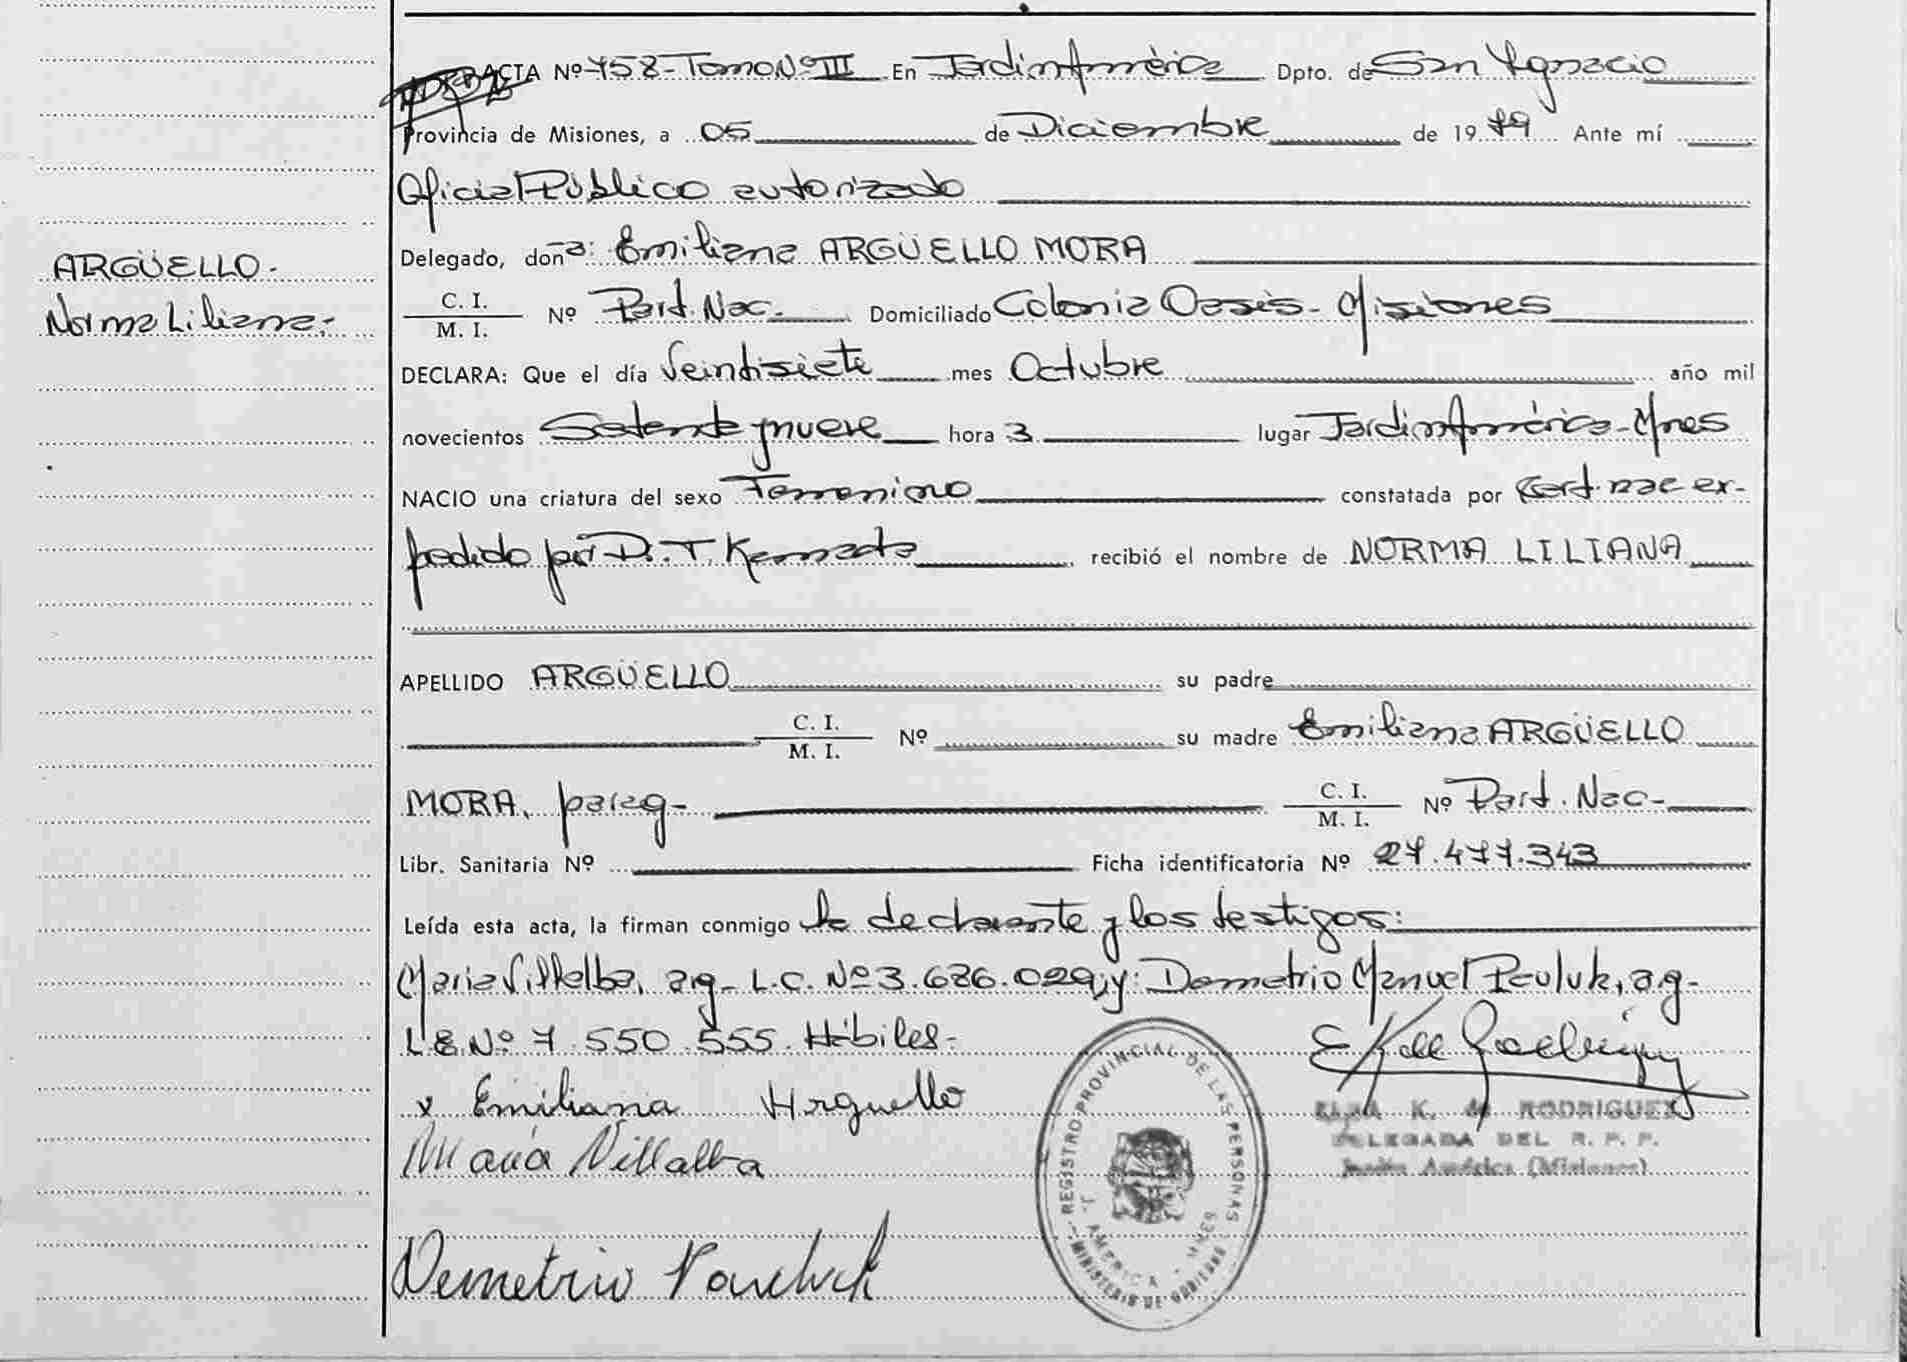 ACTA Nº 758 - Tomo Nº III En Jardín América Dpto. de San Ygnacio
Provincia de Misiones, a 05 de Diciembre de 1979 Ante mí
Oficial Público autorizado
Delegado, donã: Emiliana ARGÜELLO MORA
ARGÜELLO.-
C. I.
M. I.
Nº Part. Nac.- Domiciliado Colonia Oasis - Misiones
Norma Liliana.-
DECLARA: Que el día Veintisiete mes Octubre año mil
novecientos Setenta y nueve hora 3 lugar Jardín América - Mnes
NACIO una criatura del sexo Femenino constatada por Cert. nac ex-
pedido por D. T. recibió el nombre de NORMA LILIANA
APELLIDO ARGÜELLO su padre
C. I.
M. I.
Nº su madre Emiliana ARGÜELLO
MORA, parag-
C. I.
M. I.
Nº Part. Nac-
Libr. Sanitaria Nº Ficha identificatoria Nº 27.477.343
Leída esta acta, la firman conmigo la declarante y los testigos:
Maria Villalba, arg- L.C. Nº 3.686.029, y: Demetrio Manuel Pauluk, a.g-
L E Nº 7.550.555. Hábiles-
x Emiliana Arguello
María Villalba
REGISTRO PROVINCIAL DE LAS PERSONAS
J. AMERICA - MNES
MINISTERIO DE GOBIERNO
K. de RODRIGUEZ
DELEGADA DEL R. P. P.
Jardín América (Misiones)
Demetrio Pauluk